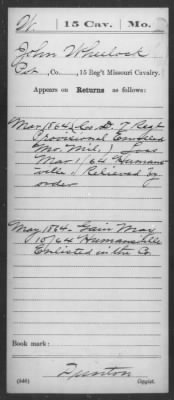 W. 15 Cav. Mo.
John Wheelock
Pvt., Co. , 15 Reg't Missouri Cavalry.
Appears on
Returns as follows:
Mar 1864) Co. D. 7 Regt
Provisional Enrolled
Mo. Mil. ) Loss
Mar 1/64 Humans-
ville, Relieved by
order
May 1864. Gain May
15/64 Humansville
Enlisted in the Co
Book mark:
(546)
Copyist.